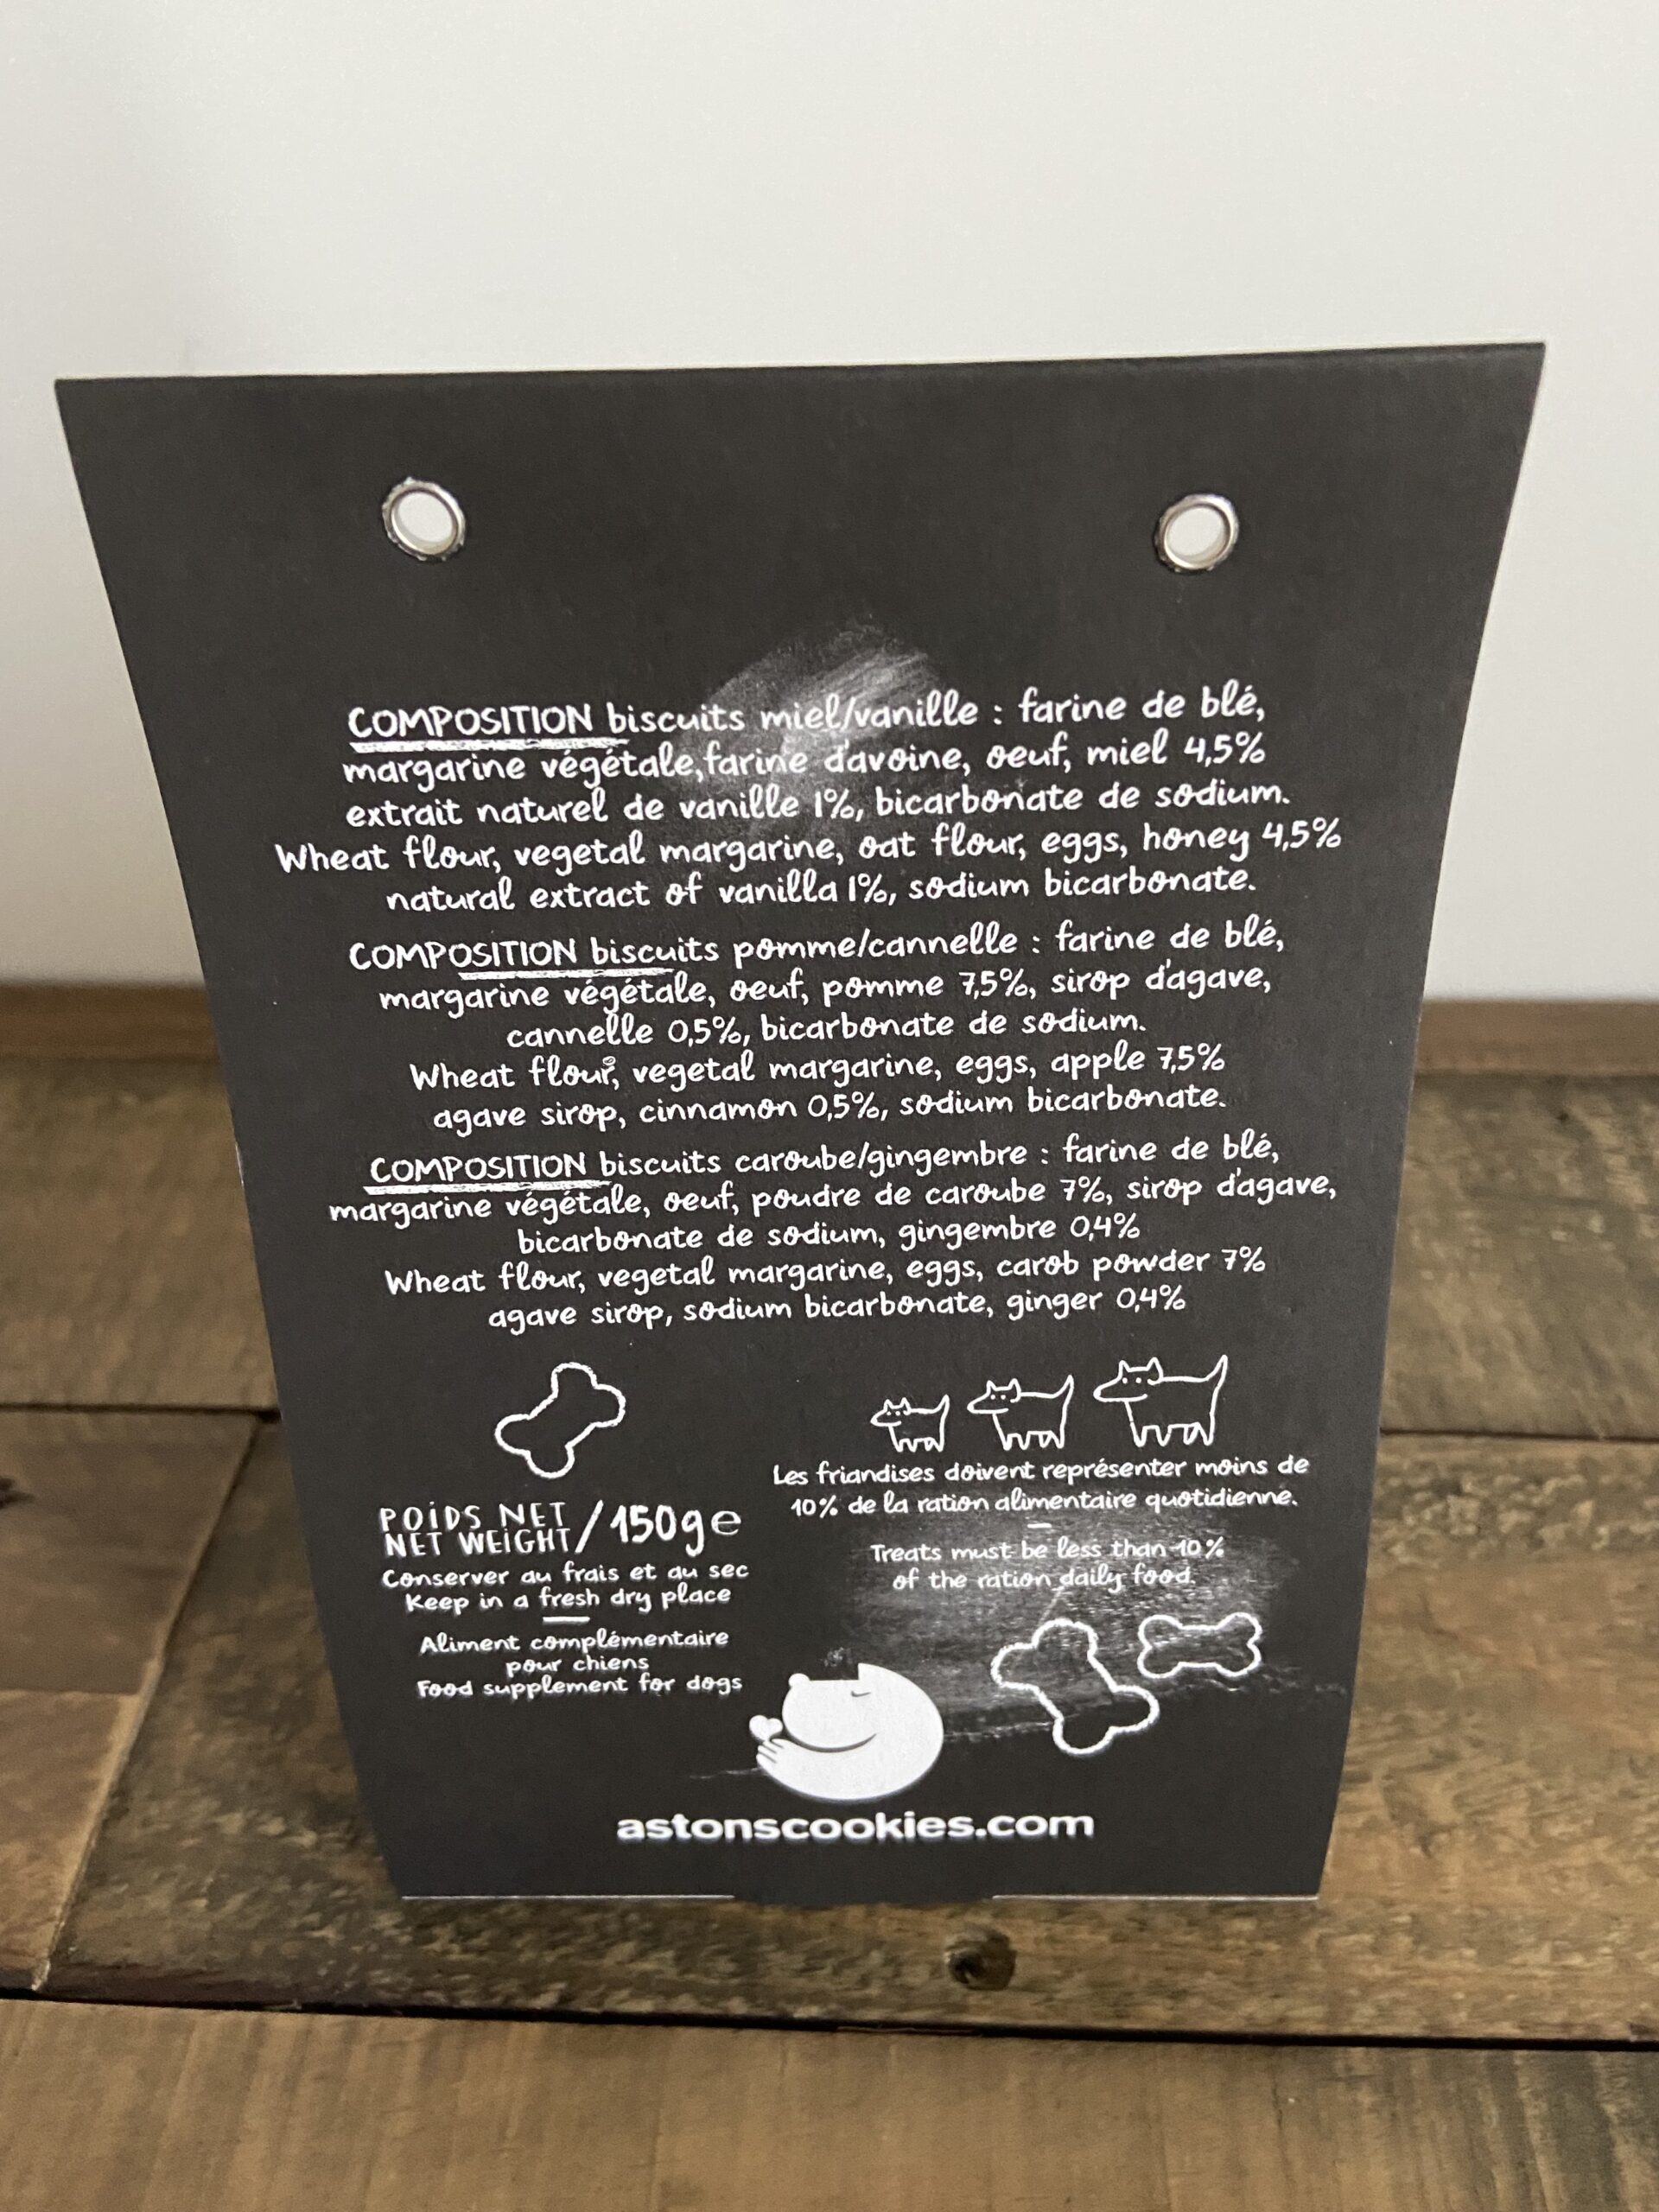 COMPOSITION biscuits miel/vanille : farine de blé,
margarine végétale,farine d'avoine, oeuf, miel 4,5%
extrait naturel de vanille 1%, bicarbonate de sodium.
Wheat flour, vegetal margarine, oat flour, eggs, honey 4,5%
natural extract of vanilla 1%, sodium bicarbonate.
COMPOSITION biscuits pomme/cannelle : farine de blé,
margarine végétale, oeuf, pomme 7,5%, sirop d'agave,
cannelle 0,5%, bicarbonate de sodium.
Wheat flour, vegetal margarine, eggs, apple 7,5%
agave sirop, cinnamon 0,5%, sodium bicarbonate.
COMPOSITION biscuits caroube/gingembre : farine de blé,
margarine végétale, oeuf, poudre de caroube 7%, sirop d'agave,
bicarbonate de sodium, gingembre 0,4%
Wheat flour, vegetal margarine, eggs, carob powder 7%
agave sirop, sodium bicarbonate, ginger 0,4%
POIDS NET
NET WEIGHT/150g e
Conserver au frais et au sec
Keep in a fresh dry place
Aliment complémentaire
pour chiens
Food supplement for dogs
Les friandises doivent représenter moins de
10% de la ration alimentaire quotidienne.
Treats must be less than 10%
of the ration daily food.
astonscookies.com